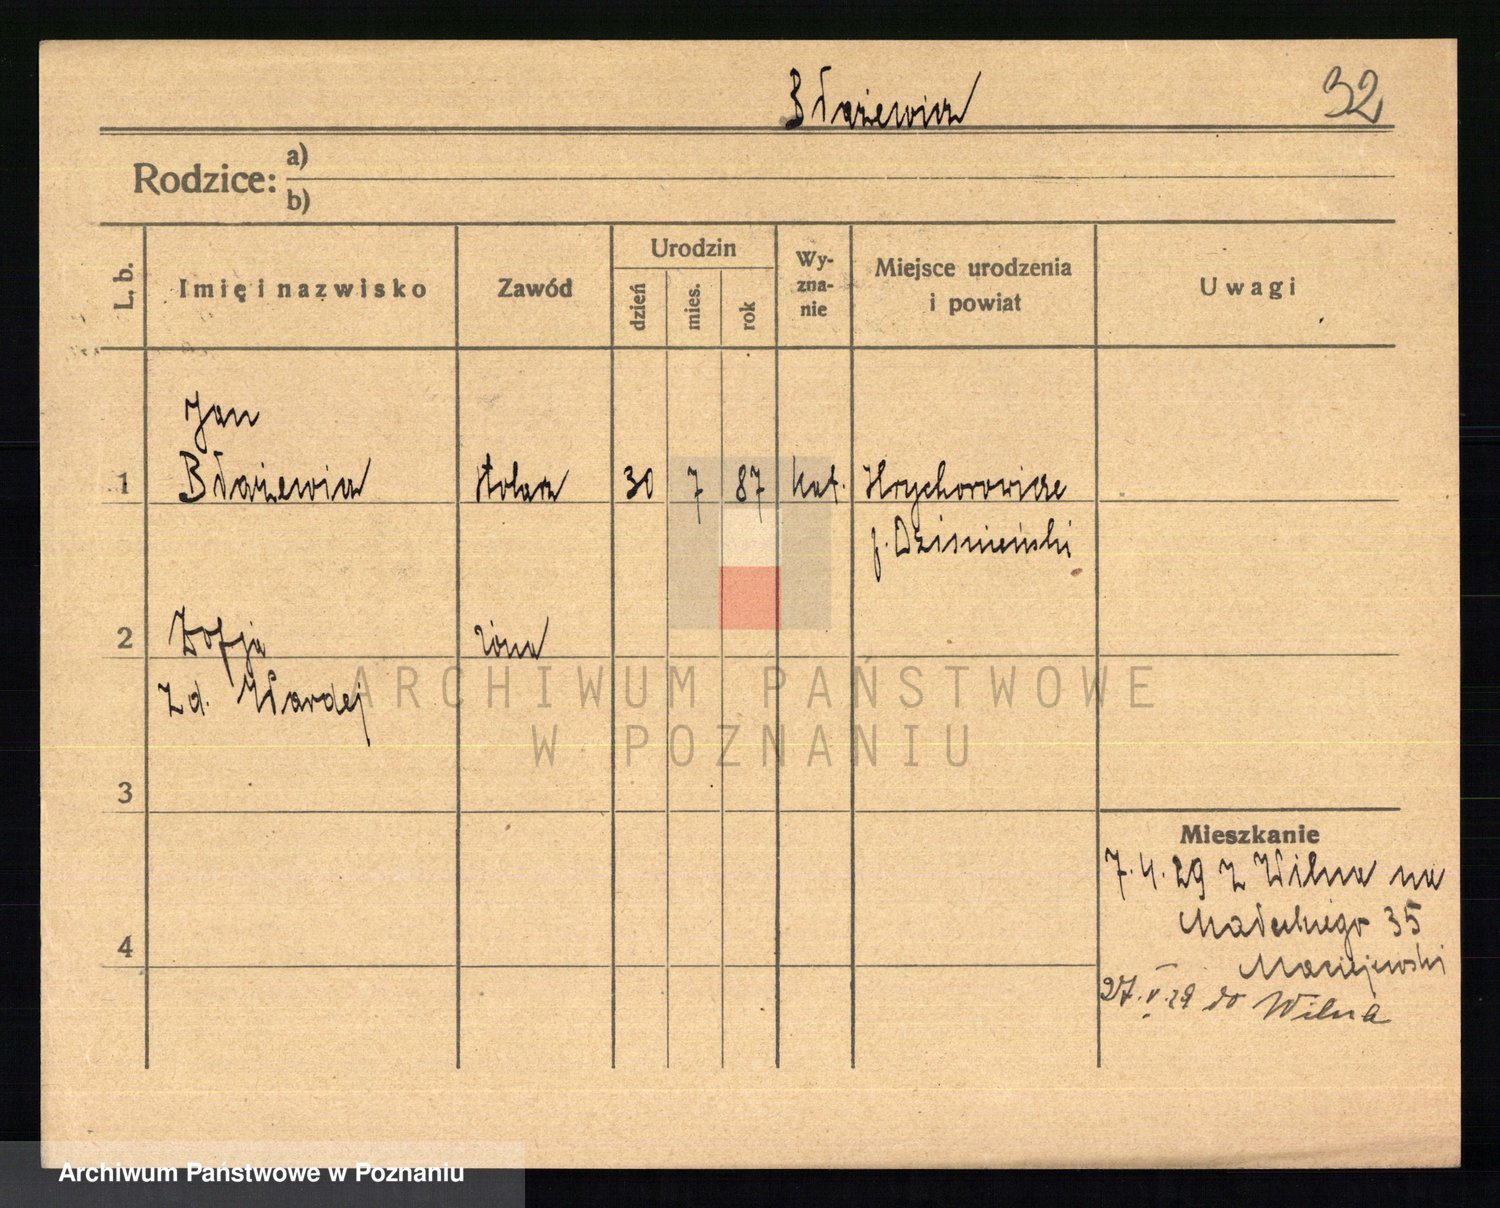 Błażewicz
32
Rodzice: a)
b)
L. b.
Imię i nazwisko
Zawód
Urodzin
dzień
mies.
rok
Wy-
zna-
nie
Miejsce urodzenia
i powiat
Uwagi
Jan
1 Błażewicz stolarz 30 7 87 kat. Hrychorowicze
p. Dziśnieński
2 Zofja żona
z d.
3
4
Mieszkanie
7.4.29 z Wilna na
Małeckiego 35
Maciejewski
27.V.29 do Wilna
ARCHIWUM PAŃSTWOWE
W POZNANIU
Archiwum Państwowe w Poznaniu